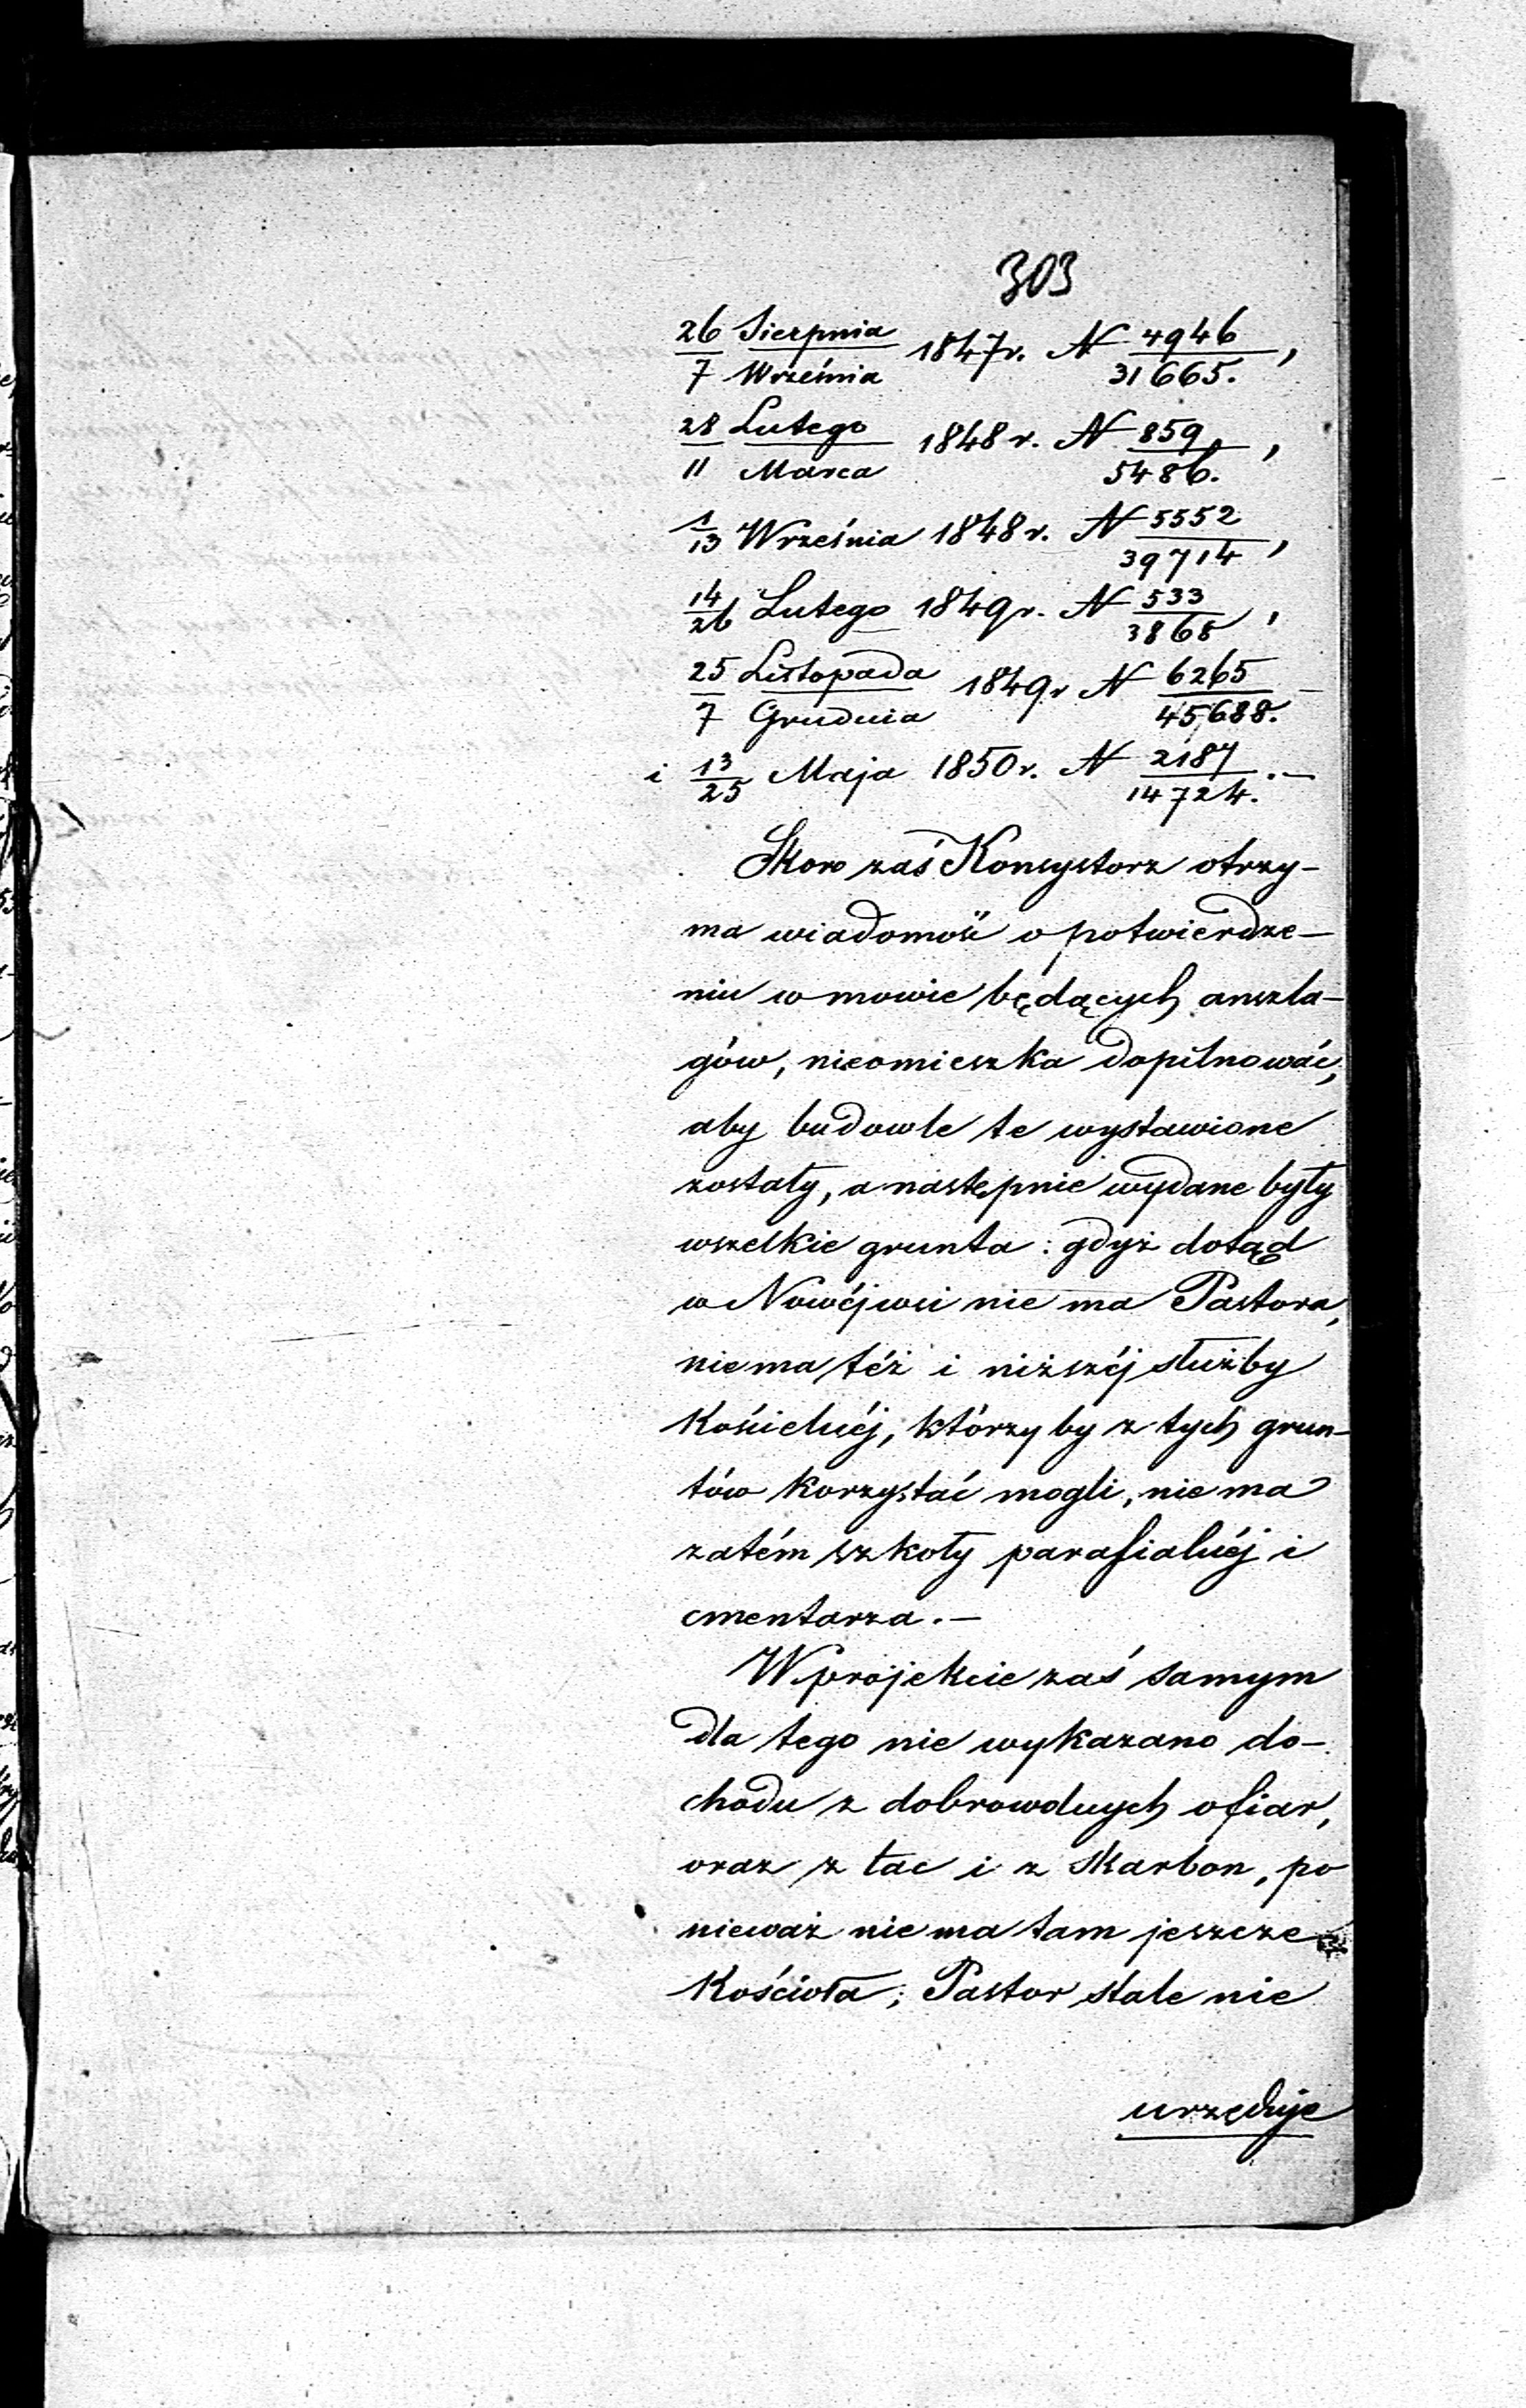 303
26 Sierpnia / 7 Września 1847 r. N 4946 / 31665.,
28 Lutego / 11 Marca 1848 r. N 859 / 5486.,
1/13 Września 1848 r. N 5552 / 39714,
14/26 Lutego 1849 r. N 533 / 3868,
25 Listopada / 7 Grudnia 1849 r N 6265 / 45,688. –
i 13/25 Maja 1850 r. N 2187 / 14724. –
Skoro zaś Konsystorz otrzy-
ma wiadomość o potwierdze-
niu w mowie będących anszla-
gów, nieomieszka dopilnować,
aby budowle te wystawione
zostały, a następnie wydane były
wszelkie grunta: gdyż dotąd
w Nowéjwsi nie ma Pastora,
niema téż i niższéj służby
Kościelnéj, którzy by z tych grun-
tów korzystać mogli, nie ma
zatém szkoły parafialnéj i
cmentarza. –
W projekcie zaś samym
dla tego nie wykazano do-
chodu z dobrowolnych ofiar,
oraz z tac i z skarbon, po
nieważ nie ma tam jeszcze
Kościoła; Pastor stale nie
urzęduje